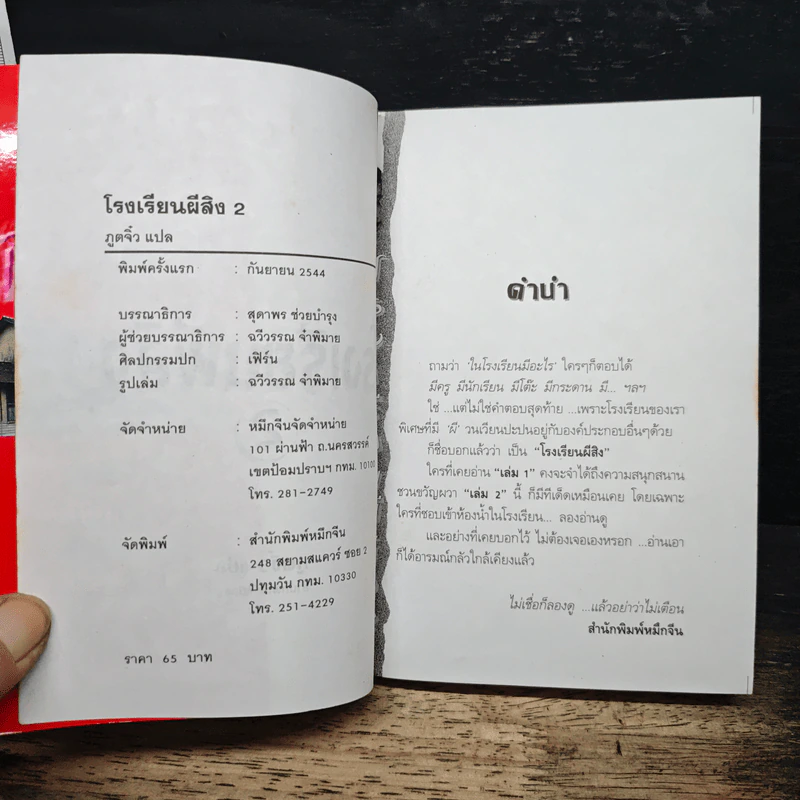 โรงเรียนผีสิง 2
ภูตจิ๋ว แปล
พิมพ์ครั้งแรก : กันยายน 2544
บรรณาธิการ : สุดาพร ช่วยบำรุง
ผู้ช่วยบรรณาธิการ : ฉวีวรรณ จำพิมาย
ศิลปกรรมปก : เฟิร์น
รูปเล่ม : ฉวีวรรณ จำพิมาย
จัดจำหน่าย : หมึกจีนจัดจำหน่าย
101 ผ่านฟ้า ถ.นครสวรรค์
เขตป้อมปราบฯ กทม. 10100
โทร. 281-2749
จัดพิมพ์ : สำนักพิมพ์หมึกจีน
248 สยามสแควร์ ซอย 2
ปทุมวัน กทม. 10330
โทร. 251-4229
ราคา 65 บาท
คำนำ
ถามว่า 'ในโรงเรียนมีอะไร' ใครๆก็ตอบได้
มีครู มีนักเรียน มีโต๊ะ มีกระดาน มี... ฯลฯ
ใช่ ...แต่ไม่ใช่คำตอบสุดท้าย ...เพราะโรงเรียนของเรา
พิเศษที่มี 'ผี' วนเวียนปะปนอยู่กับองค์ประกอบอื่นๆด้วย
ก็ชื่อบอกแล้วว่า เป็น "โรงเรียนผีสิง"
ใครที่เคยอ่าน "เล่ม 1" คงจะจำได้ถึงความสนุกสนาน
ชวนขวัญผวา "เล่ม 2" นี้ ก็มีทีเด็ดเหมือนเคย โดยเฉพาะ
ใครที่ชอบเข้าห้องน้ำในโรงเรียน... ลองอ่านดู
และอย่างที่เคยบอกไว้ ไม่ต้องเจอเองหรอก ...อ่านเอา
ก็ได้อารมณ์กลัวใกล้เคียงแล้ว
ไม่เชื่อก็ลองดู ...แล้วอย่าว่าไม่เตือน
สำนักพิมพ์หมึกจีน